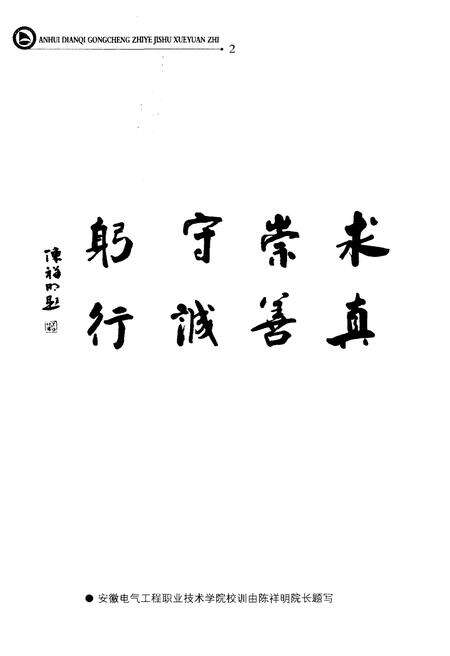 ANHUI DIANQI GONGCHENG ZHIYE JISHU XUEYUAN ZHI
2
求真
崇善
守誠
躬行
陳祥明題
● 安徽电气工程职业技术学院校训由陈祥明院长题写